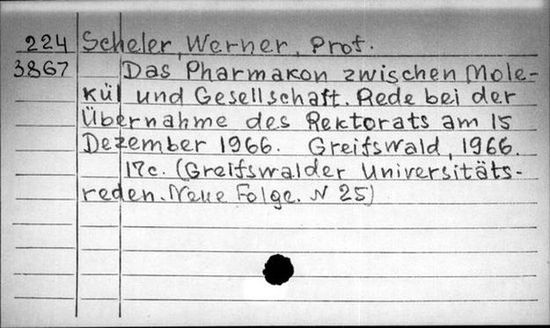 224 Scheler, Werner, Prof.
3867 Das Pharmakon zwischen Mole-
kül und Gesellschaft. Rede bei der
Übernahme des Rektorats am 15
Dezember 1966. Greifswald, 1966.
17c. (Greifswalder Universitäts-
reden. Neue Folge. N 25)